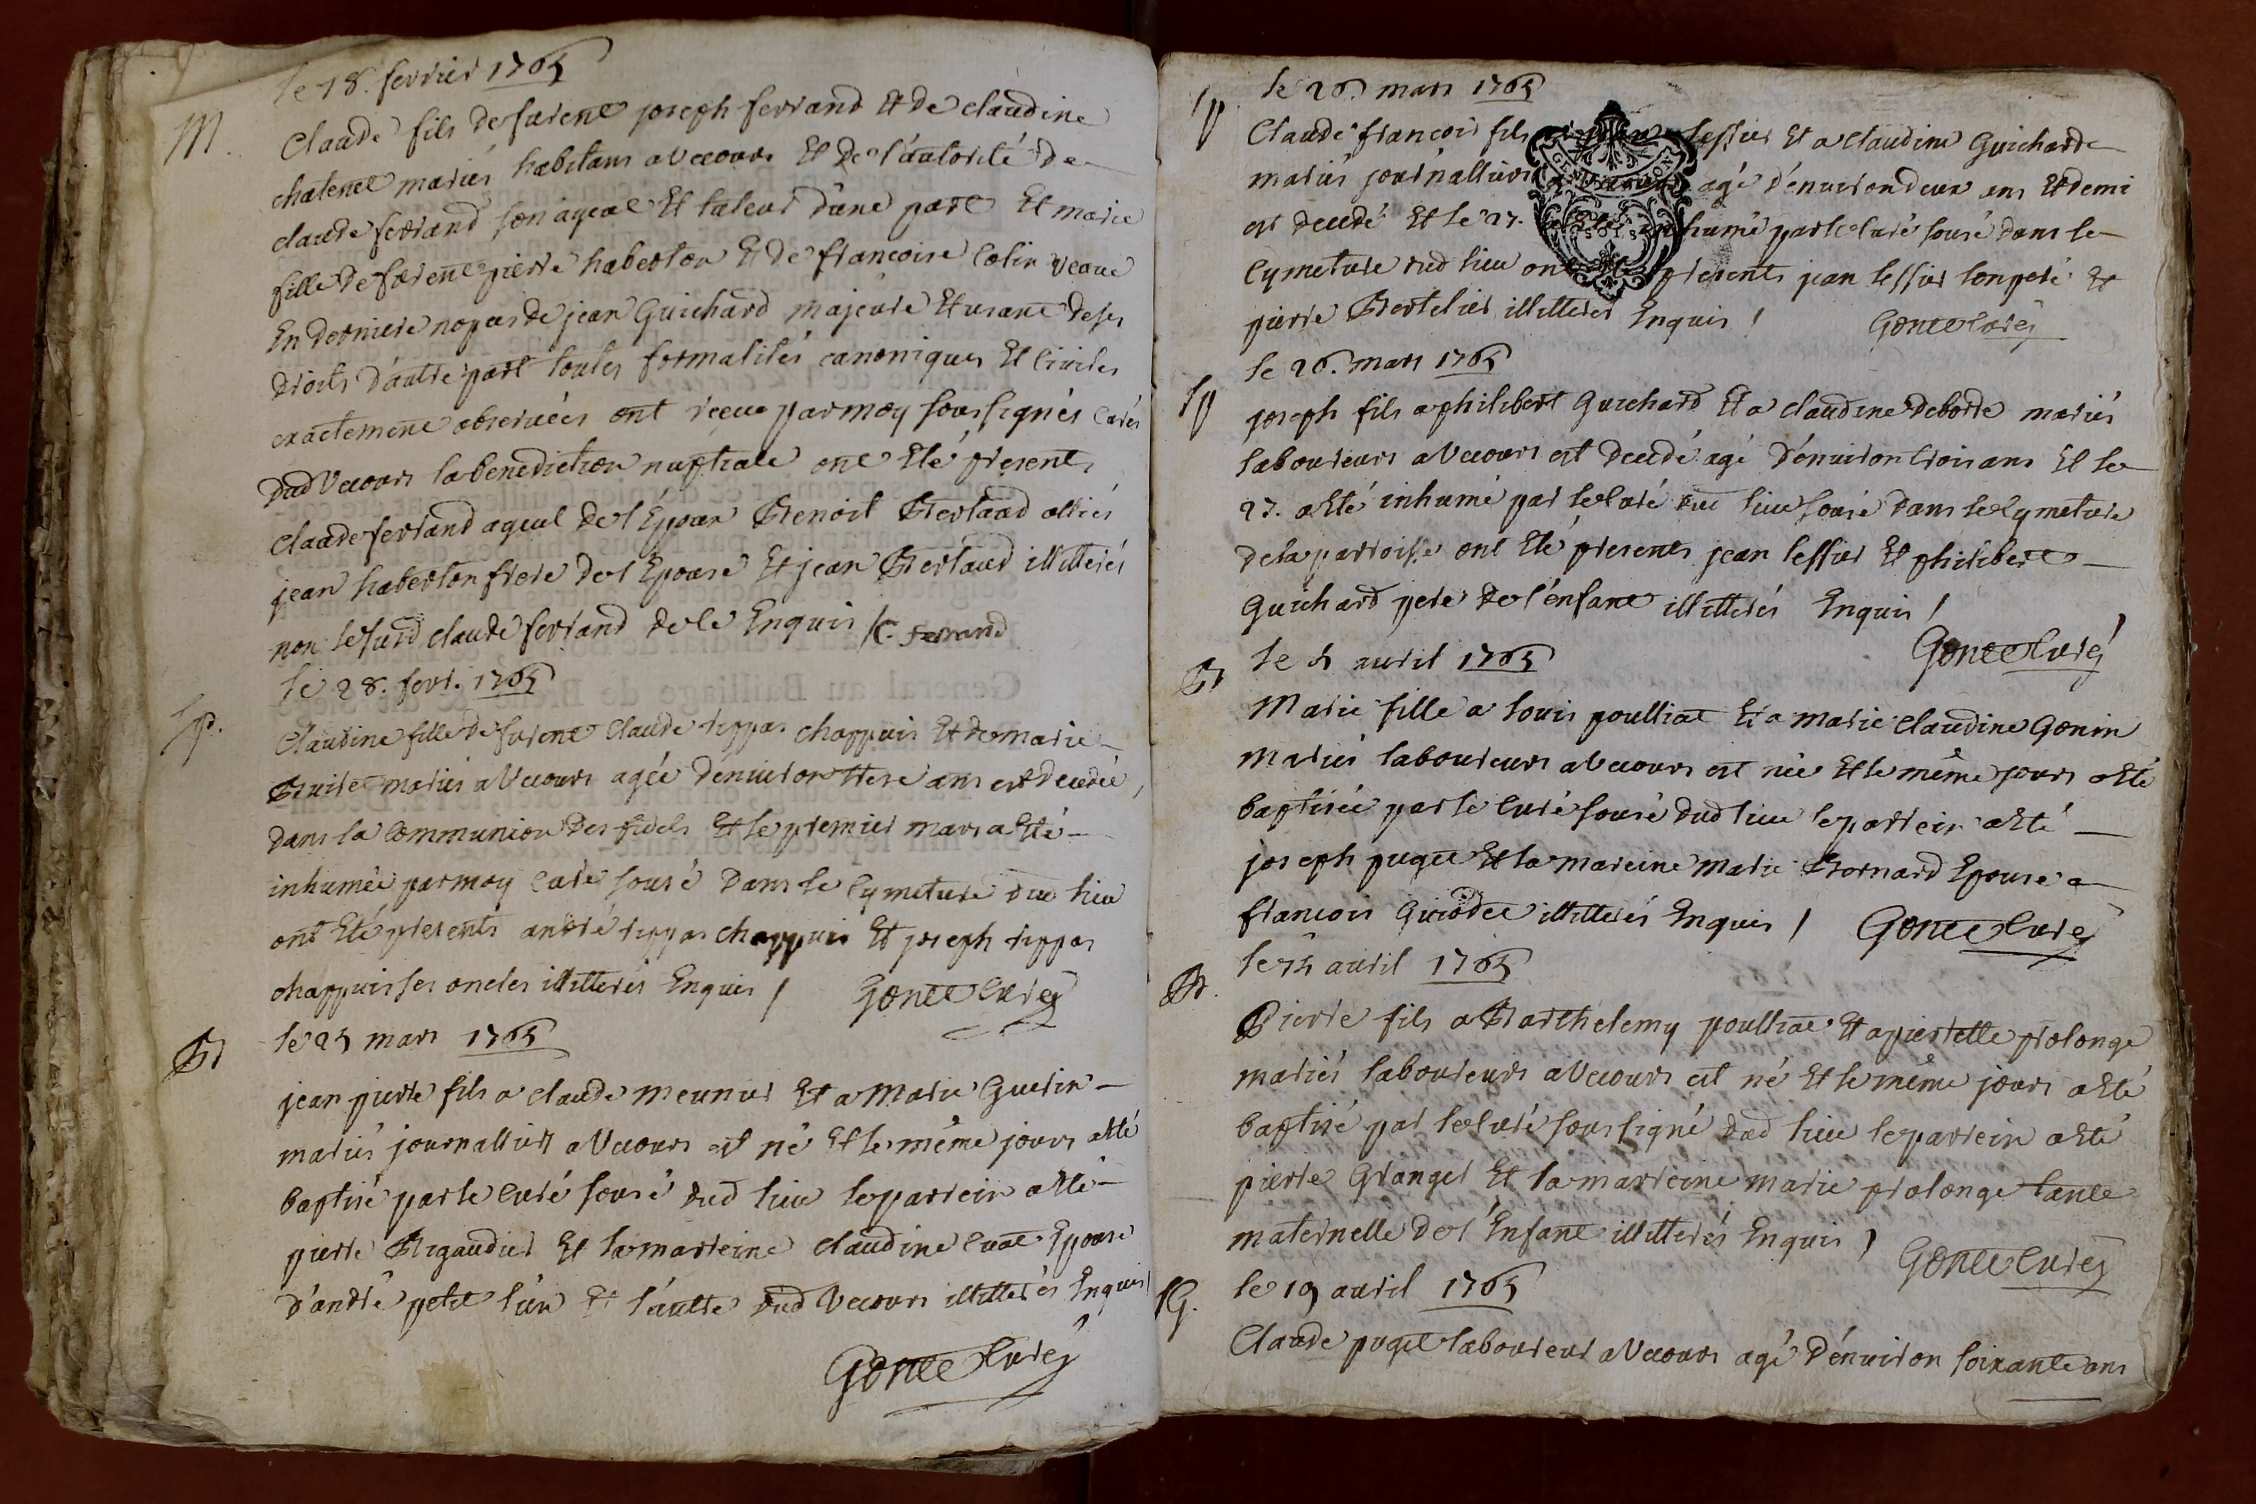 le 18. fevrier 1765
M.
Claude fils de furent joseph ferrand Et de claudine
chatenet mariés habitans a Vecours Et de l'autorité de
claude ferrand son ayeul Et tuteur d'une part Et marie
fille de furent pierre haberton Et de francoise colin veave
En derniere nopces de jean Guichard majeure Et usant de ses
droits d'autre part toutes formalités canoniques Et Civiles
exactement observées ont receu par moy soussignés Curés
dud Vecours la benediction nuptiale ont Eté presents
claude ferrand ayeul de l'Epoux Benoit Bertaud alliés
jean haberton frere de l'Epouse Et jean Bertaud illitterés
non le susd claude ferrand de ce Enquis / C. ferrand
le 28. fevr. 1765
Sp.
Claudine fille de furent Claude tippas chappuis Et de marie
mariés a Vecours agée d'environ treze ans est decedée
dans la Communion des fidels Et le premier mars a Eté
inhumée par moy curé sousé dans le Cymeture dud lieu
ont Eté presents andré tippas chappuis Et joseph tippas
chappuis ses oncles illitterés Enquis / Gonet Curé
le 25 mars 1765
B
jean pierre fils a claude meunier Et a Marie Guerin
mariés journalliers a Vecours est né Et le même jours a Eté
baptisé par le Curé sousé dud lieu le parrein a Eté
pierre Bigaudier Et la marreine claudine Epouse
d'andré petit l'un Et l'autre dud Vecours illitterés Enquis /
Gonet Curé
le 26. mars 1765
Sp
Claude francois fils tessier Et a Claudine Guicharde
mariés journalliers agé d'environ deux ans Et demi
est decedé Et le 27. inhumé par le Curé sousé dans le
Cymeture dud lieu ont presents jean tessier son pere et
pierre Bertelier illitterés Enquis / Gonet Curé
le 26. mars 1765
Sp
joseph fils a philibert Guichard Et a claudine deborde mariés
laboureurs a Vecours est decedé agé d'environ trois ans Et le
27. a Eté inhumé par le Curé dud lieu sousé dans le Cymeture
de la parroisse ont Eté presents jean tessier Et philibert
Guichard pere de l'enfant illitterés Enquis /
Gonet Curé
le 5 avril 1765
B
Marie fille a louis poulliat Et a marie claudine Gonin
Mariés laboureurs a Vecours est née Et le même jours a Eté
baptisée par le Curé sousé dud lieu le parrein a Eté
joseph puget Et la mareine Marie Bornard Epouse a
francois Girodet illitterés Enquis / Gonet Curé
le 15 avril 1765
B.
Pierre fils a Barthelemy poulliat Et a pierrette prolonge
mariés laboureurs a Vecours est né Et le même jours a Eté
baptisé par le Curé soussigné dud lieu le parrein a Eté
pierre Granger Et la marreine marie prolonge tante
maternelle de l'Enfant illitterés Enquis / Gonet Curé
le 19 avril 1765
SG.
Claude puget laboureur a Vecours agé d'environ soixante ans